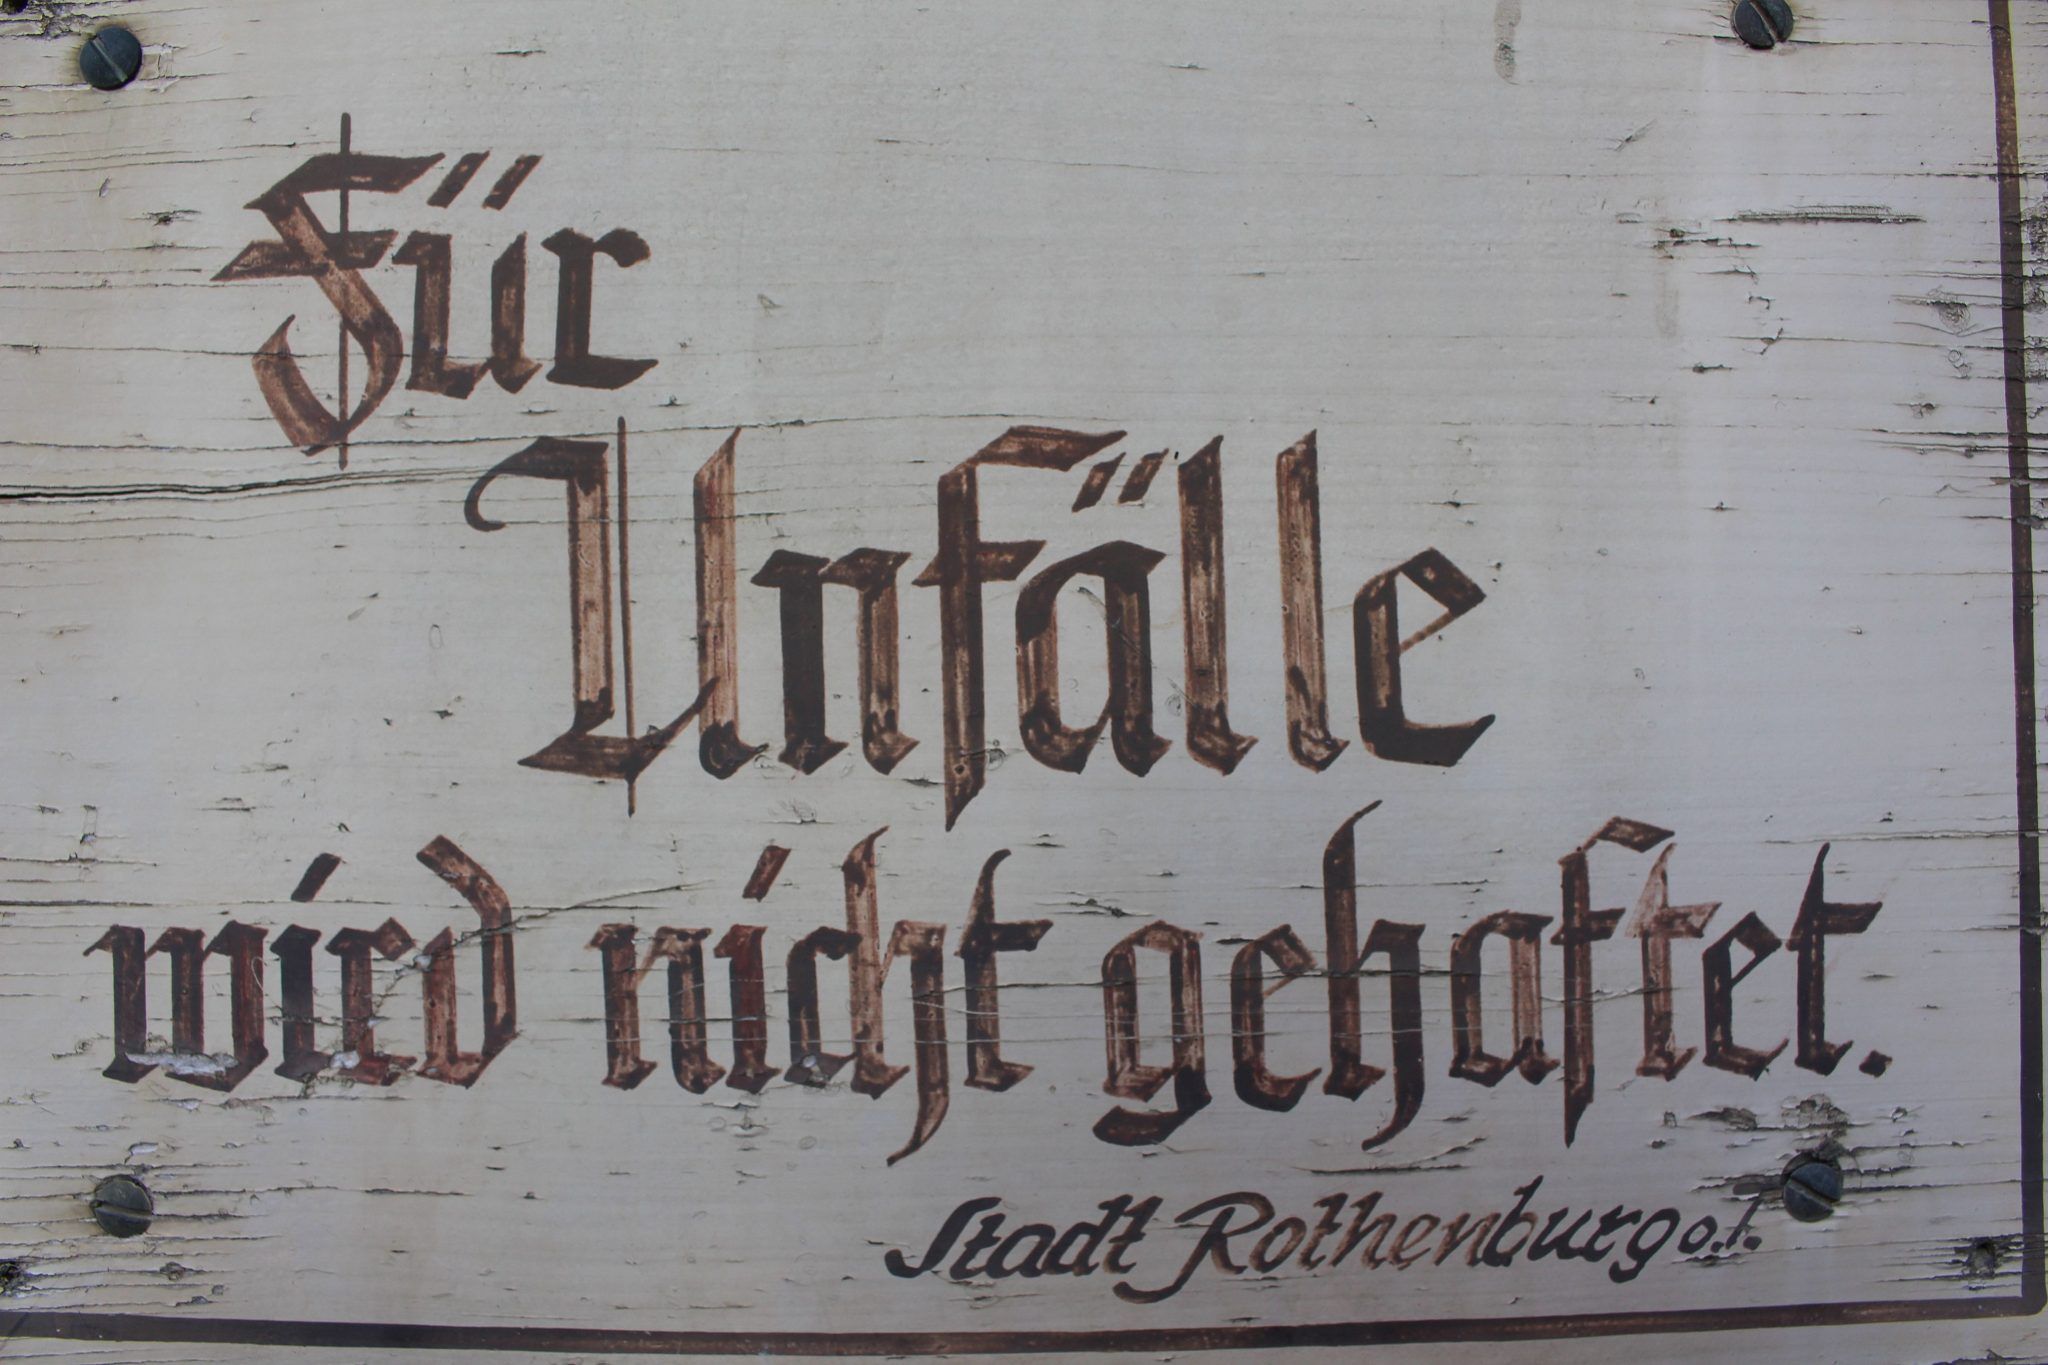 Für
Unfälle
wird nicht gehaftet.
Stadt Rothenburg o.T.